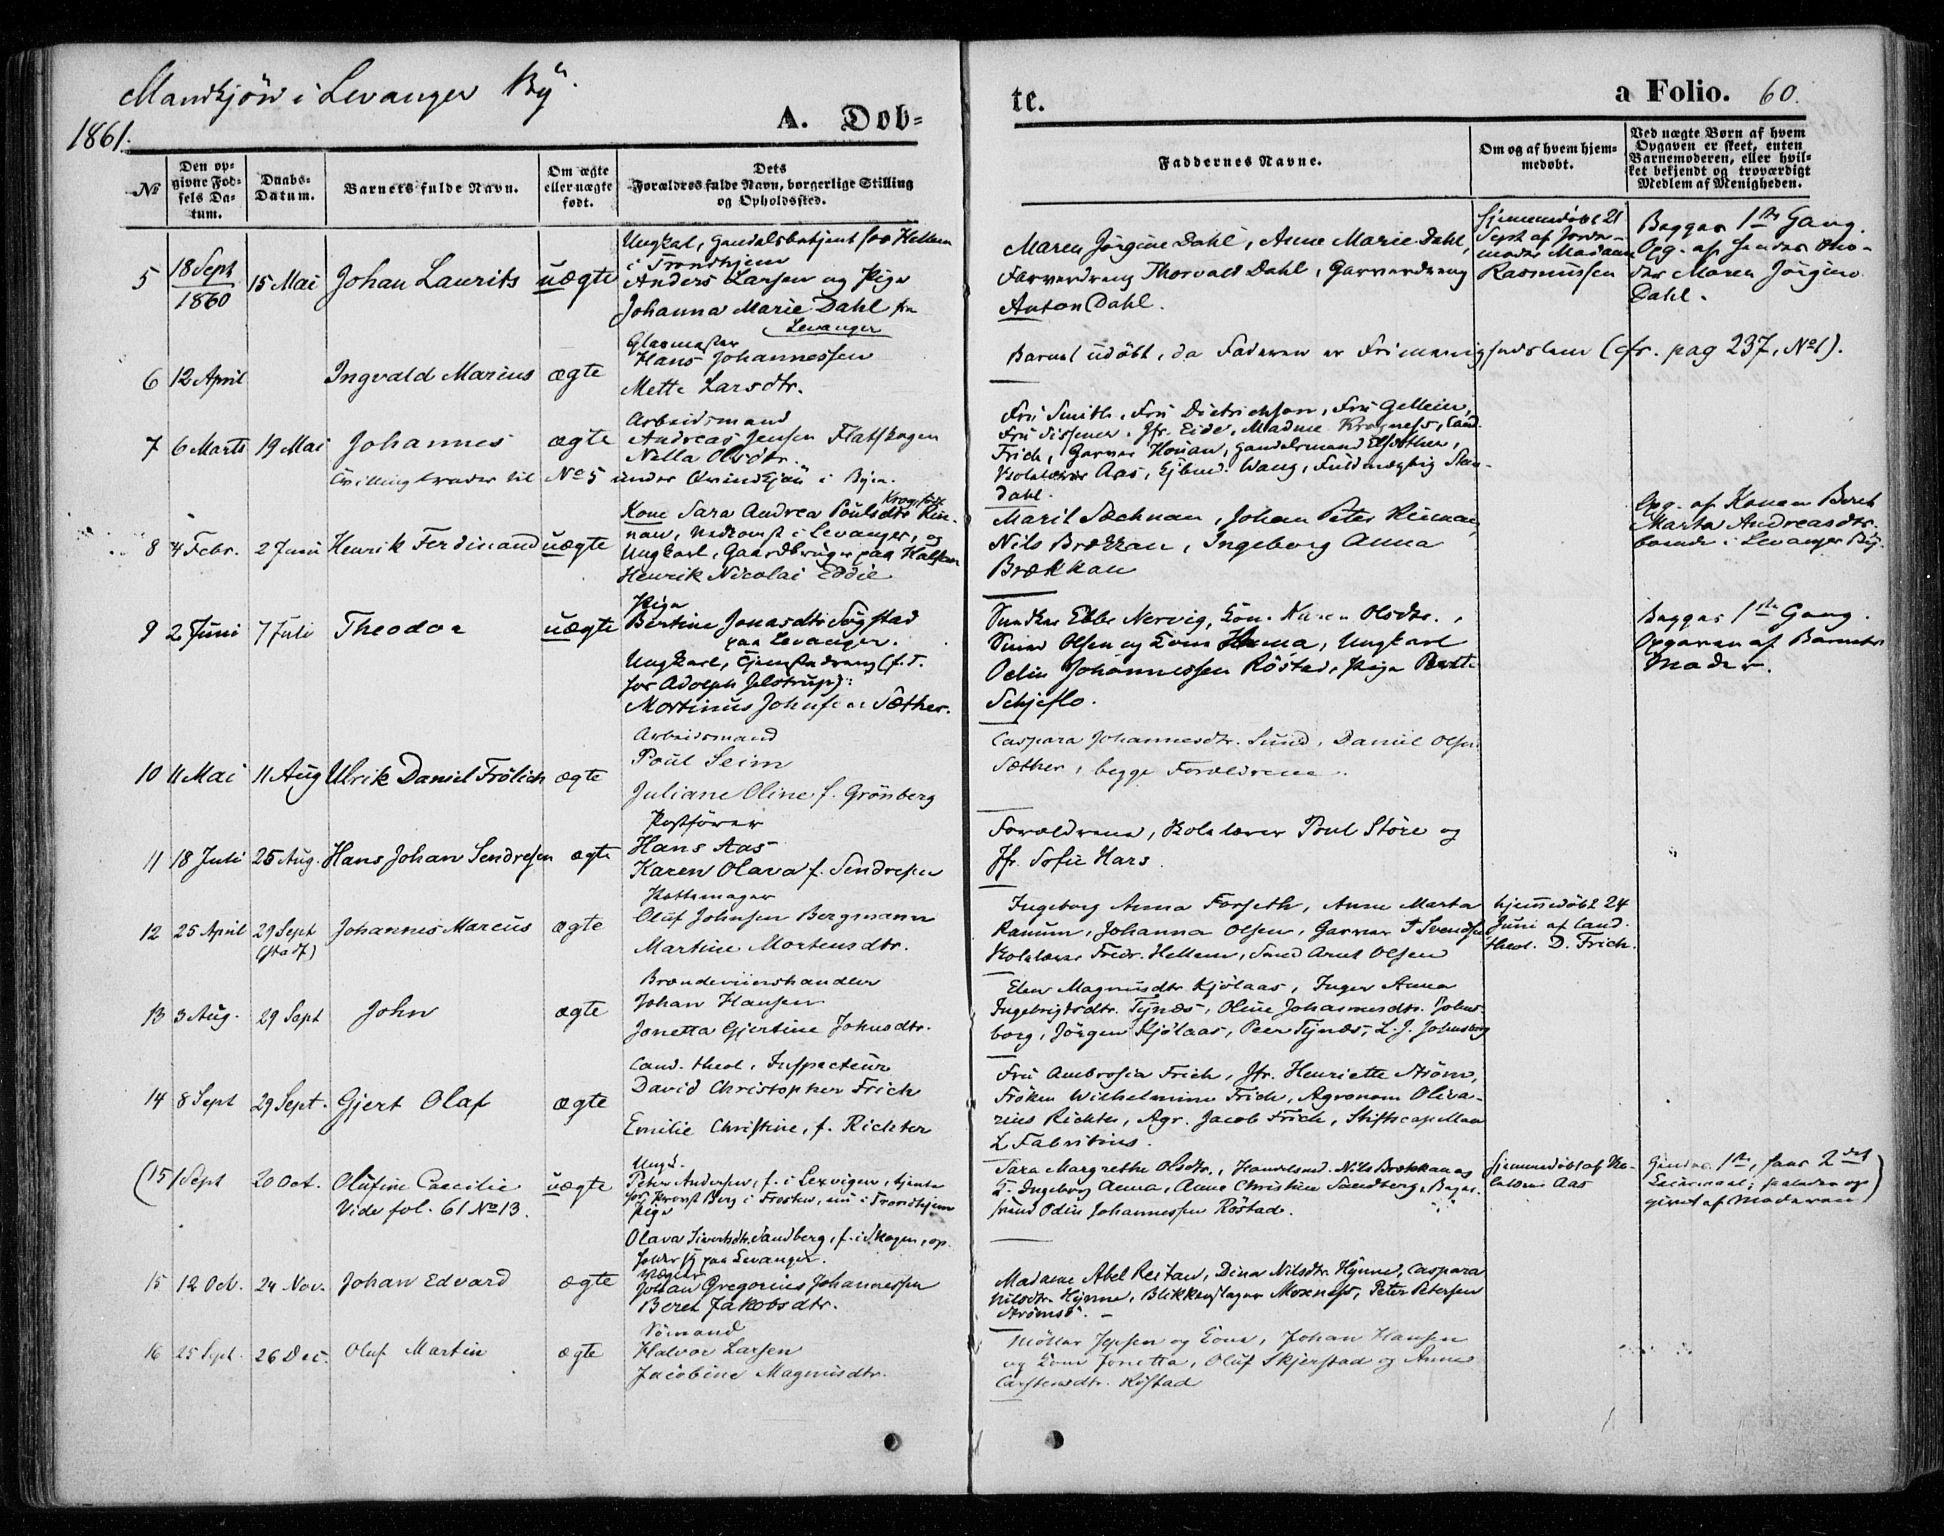 Mandkjön i Levanger By.
1861.
A. Døb-
te.
a Folio. 60.
№
Den opgivne Fødsels Datum.
Daabs-Datum.
Barnets fulde Navn.
Om ægte eller uægte født.
Dets Forældres fulde Navn, borgerlige Stilling og Opholdssted.
Faddernes Navne.
Om og af hvem hjemmedøbt.
Ved uægte Børn af hvem Opgaven er skeet, enten Barnemoderen, eller hvilket bekjendt og troværdigt Medlem af Menigheden.
5 18 Sept 1860 15 Mai Johan Laurits uægte
Ungkarl, Handelsbetjent hos Hellem
i Trondhjem
Anders Larsen og Pige
Johanna Marie Dahl fra
Levanger
Maren Jörgine Dahl, Anne Marie Dahl,
Farverdreng Thorvald Dahl, Garverdreng
Anton Dahl.
Hjemmedøbt 21
Sept af Jorde-
moder Madame
Rasmussen
Begges 1ste Gang.
Opg. af hendes Mo-
der Maren Jörgine
Dahl.
6 12 April Ingvald Marius ægte
Glasmester
Hans Johannessen
Mette Larsdtr.
Barnet udöbt, da Faderen er Frimenighedslem (cfr. pag 237, № 1).
7 6 Marts 19 Mai Johannes ægte
Arbeidsmand
Andreas Jensen Flatskogen
Nella Olsdtr.
Tvillingbroder til № 5 under Qvindkjön i Byen.
Fru Smith, Fru Dietrichson, Fru G. Meier,
Fru Dissener, Jfr. Eide, Madme Krogness, Cand.
Frich, Garver Houan, Handelsmand
Skolelærer Aas, Ejbmd. Wang, Fuldmægtig
dahl.
8 4 Febr. 2 Juni Henrik Ferdinand uægte
Kone Sara Andrea Poulsdtr Rin-
nan, i Levanger, og
Ungkarl, Gaardbruger paa
Henrik Nicolai Eddie
Marit Sechnan, Johan Peter Rinnan,
Nils Brækkan, Ingeborg Anna
Brækkan
Opg. af Konen Beret
Marta Andreasdtr.
boende i Levanger By.
9 2 Juni 7 Juli Theodor uægte
Pige
Bertine Jonasdtr Søgstad
paa Levanger.
Ungkarl, Tjenestedreng (f. T.
hos Adolph Jelstrup):
Martinus Johnsen Sæther.
Ebbe Nervig, Kone Karen Olsdtr.,
Olsen og Kone Hanna, Ungkarl
Odin Johannessen Röstad, Pige
Schjeflo.
Begges 1ste Gang.
Opgaven af Barnets
Moder.
10 11 Mai 11 Aug Ulrik Daniel Frölich ægte
Arbeidsmand
Poul Seim
Juliane Oline f. Grönberg
Caspara Johannesdtr. Sund, Daniel Olsen
Sæther, begge Forældrene.
11 18 Juli 25 Aug. Hans Johan Sendresen ægte
Postförer
Hans Aas
Karen Olava f. Sendresen
Forældrene, Skolelærer Poul Störe og
Jfr. Sofie Hars.
12 25 April 29 Sept (stadf) Johannes Marcus ægte
Pottemager
Oluf Johnsen Bergmann
Martine Mortensdtr.
Ingeborg Anna Forseth, Anne Marta
Ranum, Johanna Olsen, Garver Svendsen
Skolelærer Fredr. Hellem, Smed Arnt Olsen
hjemmedöbt 24
Juni af Cand.
theol. D. Frich.
13 3 Aug. 29 Sept John ægte
Brændeviinshandler
Johan Hansen
Jonetta Gjertine Johnsdtr.
Elen Magnusdtr. Kjölaas, Inger Anna
Ingebrigtsdtr. Tynæs, Oline Johannesdtr. Johns-
borg, Jörgen Kjölaas, Peer Tynæs, L. J. Johnsborg
14 8 Sept 29 Sept. Gjert Olaf ægte
Cand. theol, Inspecteur
David Christopher Frich
Emilie Christine, f. Richter
Fru Ambrosia Frich, Jfr. Henriette Ström,
Fröken Wilhelmine Frich, Agronom Oliva-
rius Richter, Agr. Jacob Frich, Stiftscapellan
L Fabritius.
(15) 1 Sept 20 Oct. Olufine Caecilie uægte
Vide fol. 61 № 13.
Ungk.
Peter Andersen, f. i Lexvigen, tjente
hos Provst Berg i Frosten, nu i Trondhjem
Pige
Olava Sivertsdtr. Sandberg, f. i Skogn, op-
holder sig paa Levanger.
Sara Margrethe Olsdtr., Handelsmd. Nils Brækkan og
K. Ingeborg Anna, Anne Christine Sandberg, Bager-
svend Odin Johannessen Röstad.
Hjemmedöbt af Sko-
lelærer Aas
Hendes 1ste, hans 2det
Leiermaal; Faderen op-
givet af Moderen)
15 12 Oct. 24 Nov. Johan Edvard ægte
Johan Gregorius Johannessen
Beret Jakobsdtr.
Madame Abel Reitan, Dina Nilsdtr. Hynne, Caspara
Nilsdtr. Hynne, Blikkenslager Moxness, Peter Petersen
Strömsö.
16 25 Sept. 26 Dec. Oluf Martin ægte
Sömand
Halvor Larsen
Jacobine Magnusdtr.
Möller Jepsen og Kone, Johan Hansen
og Kone Jonetta, Oluf Skjerstad og Anne
Carstensdtr. Röstad